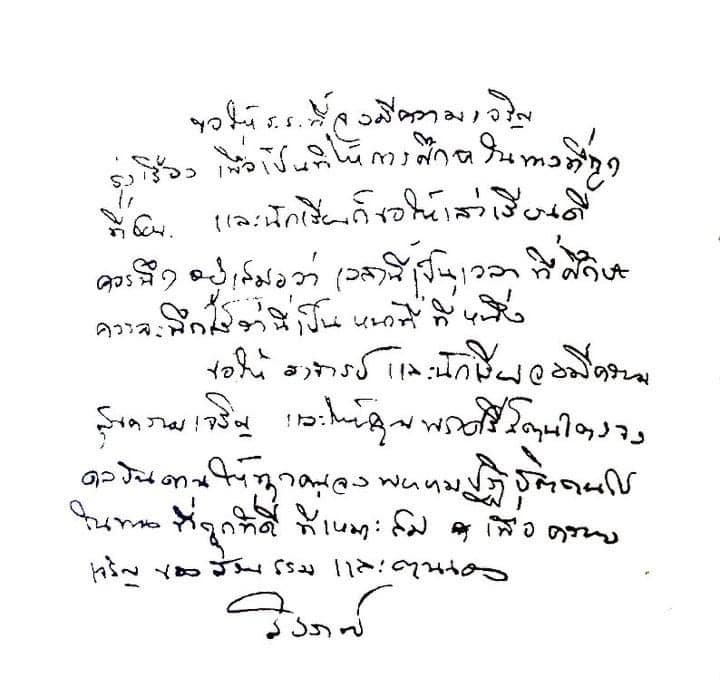 ขอให้ ร.ร. นี้จงมีความเจริญ
รุ่งเรือง เพื่อเป็นที่ให้การศึกษาในทางที่ถูก
ที่ชอบ. และนักเรียนก็ขอให้เล่าเรียนดี
ควรนึกอยู่เสมอว่า เวลานี้เป็นเวลาที่ศึกษา
ควรจะนึกไว้ว่านี่เป็นหน้าที่ที่หนึ่ง
ขอให้อาจารย์และนักเรียนจงมีความ
สุขความเจริญ และให้คุณพระศรีรัตนตรัยจง
ดลบันดาลให้ทุกคนจงพยายามปฏิบัติตนไป
ในทางที่ถูกที่ดี ที่เหมาะสม เพื่อความ
เจริญของสังคม และตนเอง